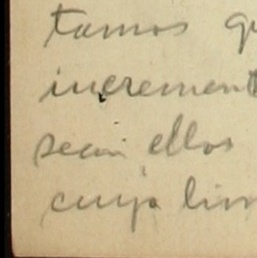 tamos q
increment
sean ellos
cuya lim